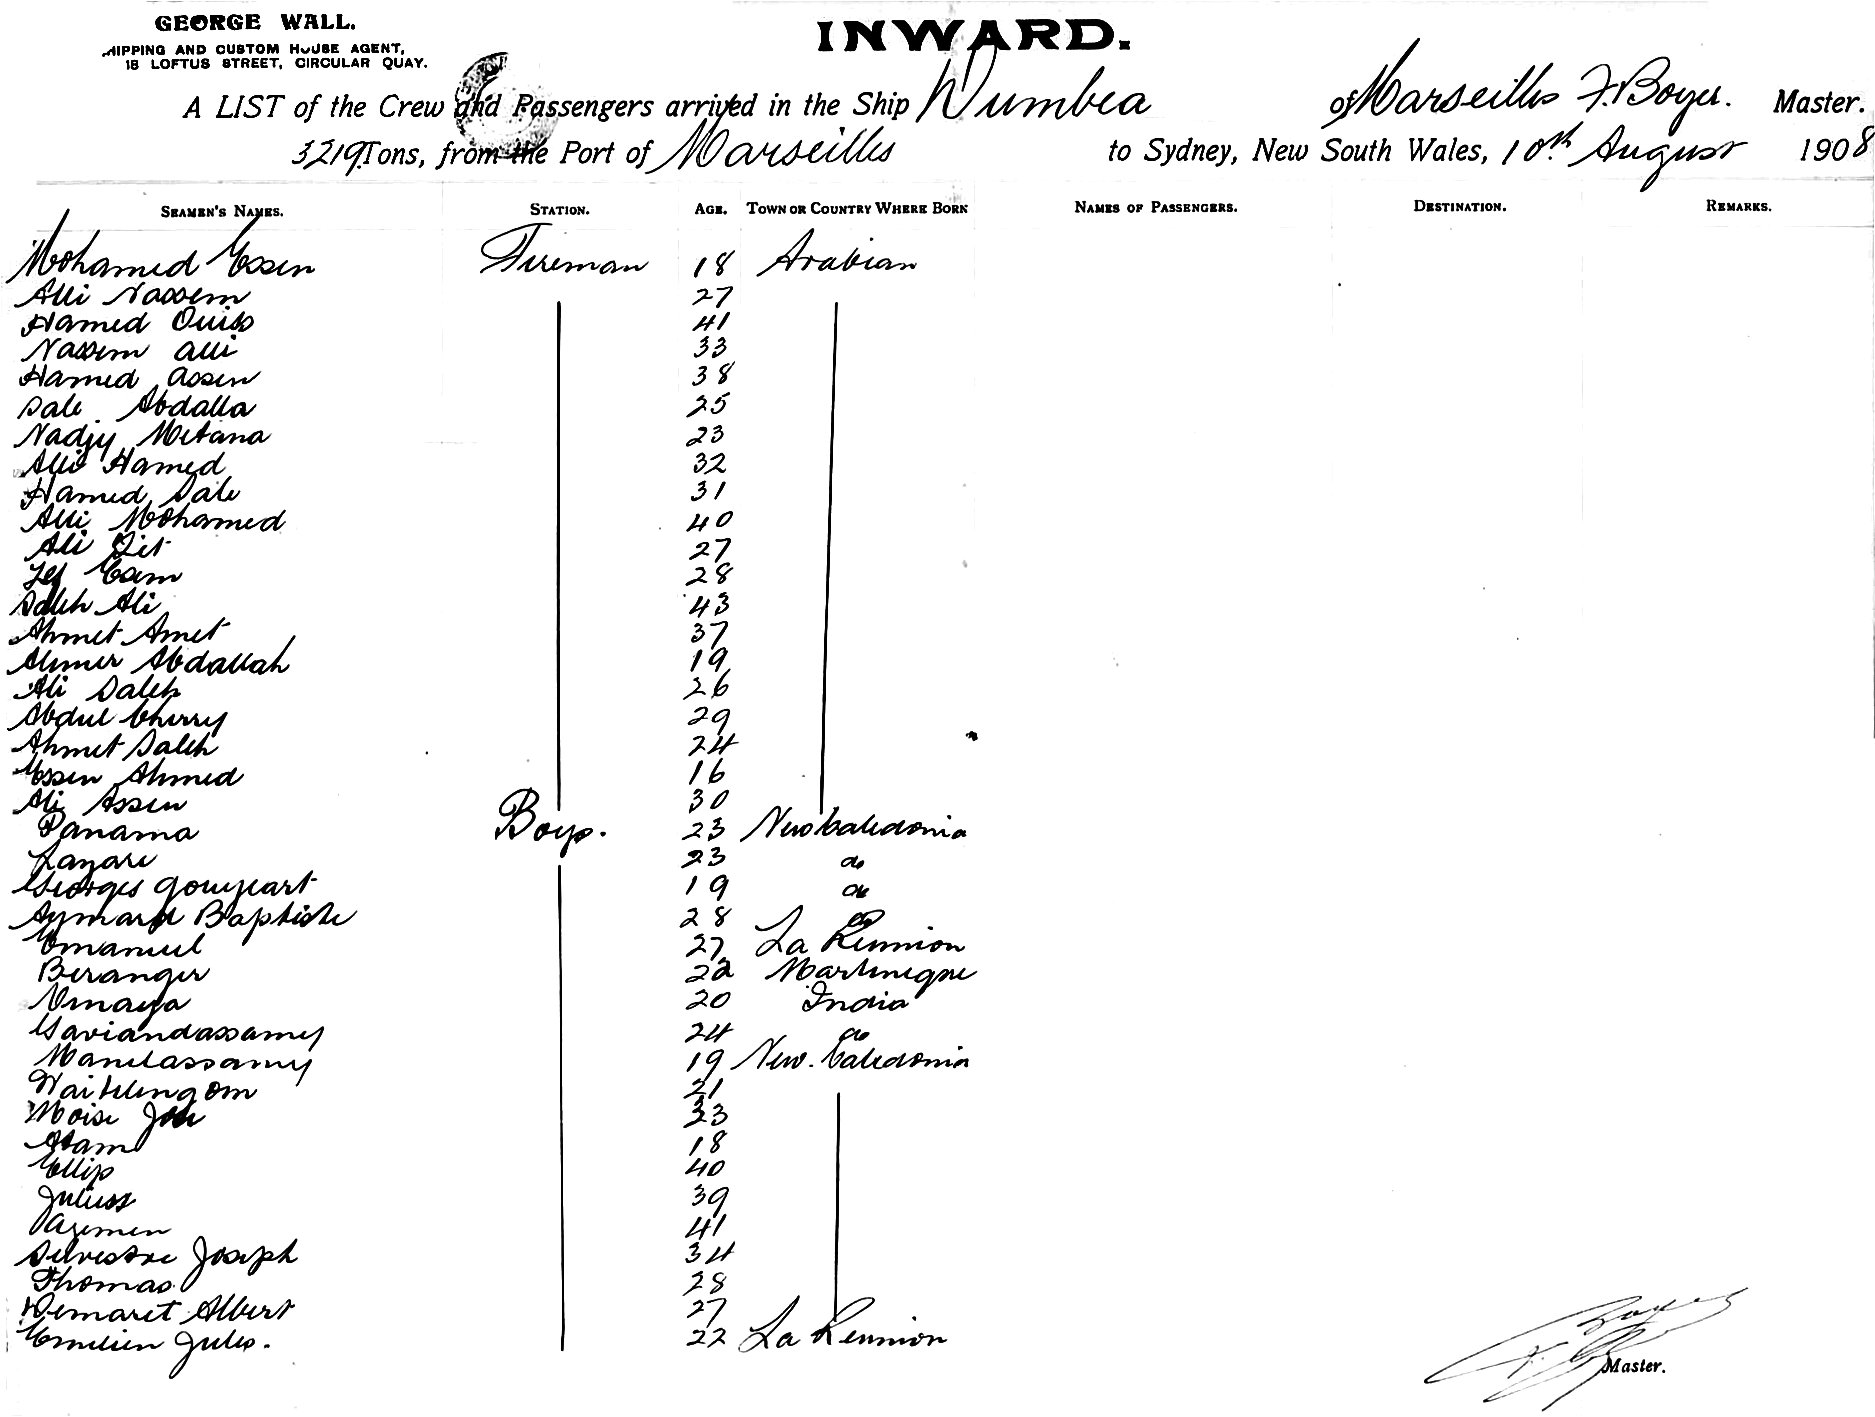 GEORGE WALL.
SHIPPING AND CUSTOM HOUSE AGENT,
18 LOFTUS STREET, CIRCULAR QUAY.
INWARD.
A LIST of the Crew and Passengers arrived in the Ship Dumbea of Marseilles F. Boyer. Master.
3219 Tons, from the Port of Marseilles to Sydney, New South Wales, 10th August 1908
SEAMEN'S NAMES. STATION. AGE. TOWN OR COUNTRY WHERE BORN NAMES OF PASSENGERS. DESTINATION. REMARKS.
Mohamed Essen Fireman 18 Arabian
Alli Nassem 27
Hamed Ouiss 41
Nassem Alli 33
Hamed Assen 38
Sale Abdalla 25
Nadjy Metana 23
Alli Hamed 32
Hamed Sale 31
Alli Mohamed 40
Ali 27
28
Saleh Ali 43
Ahmet Amet 37
Ahmer Abdallah 19
Ali Saleh 26
Abdul Cherry 29
Ahmet Saleh 24
Essen Ahmed 16
Ali Assen 30
Panama Boys. 23 New Caledonia
Lazare 23 do
Georges 19 do
Aymard Baptiste 28 do
Emanuel 27 La Reunion
Beranger 22 Martinique
Vinaya 20 India
Gaviandassamy 24 do
Manelassamy 19 New. Caledonia
Waitelingom 21
Moise 23
Atam 18
Ellip 40
Juliuss 39
Azemen 41
Silvestre Joseph 34
Thomas 28
Demaret Albert 27
Emilien Jules. 22 La Reunion
F. Boyer
Master.